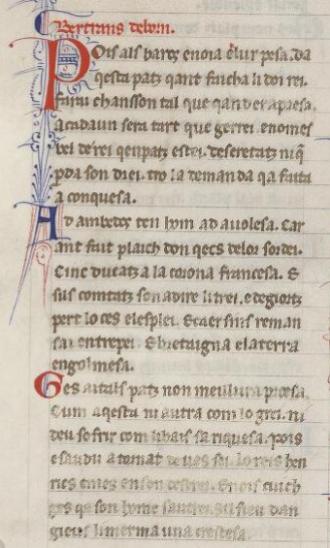 Bertrans deborn.
Pois als baros enoia elur pesa. da
qesta patz qant faicha li doi rei.
farai chansson tal que qand er apresa.
a cadaun sera tart que gerrei. e nomes
bel de rei qen patz estei. deseretatz ni q
perda son drei. tro la demanda qa faita
a conquesa.
Ad ambedos ten hom ad avolesa. Car
ant fait plaich don qecs delor sordei.
Cinc ducatz a la corona francesa. E
sils comtatz son a dire li trei. e de giortz
pert lo ces e lesplei. E caersins reman
sai entrepei. E bretaigna e la terra
engolmesa.
Ges aitals patz non meillura proesa.
Cum aqesta ni autra com lo grei. ni
deu sofrir com li bais sa riquesa. pois
esaudu a tornat deves sei. lo reis hen
rics
ges qe son home